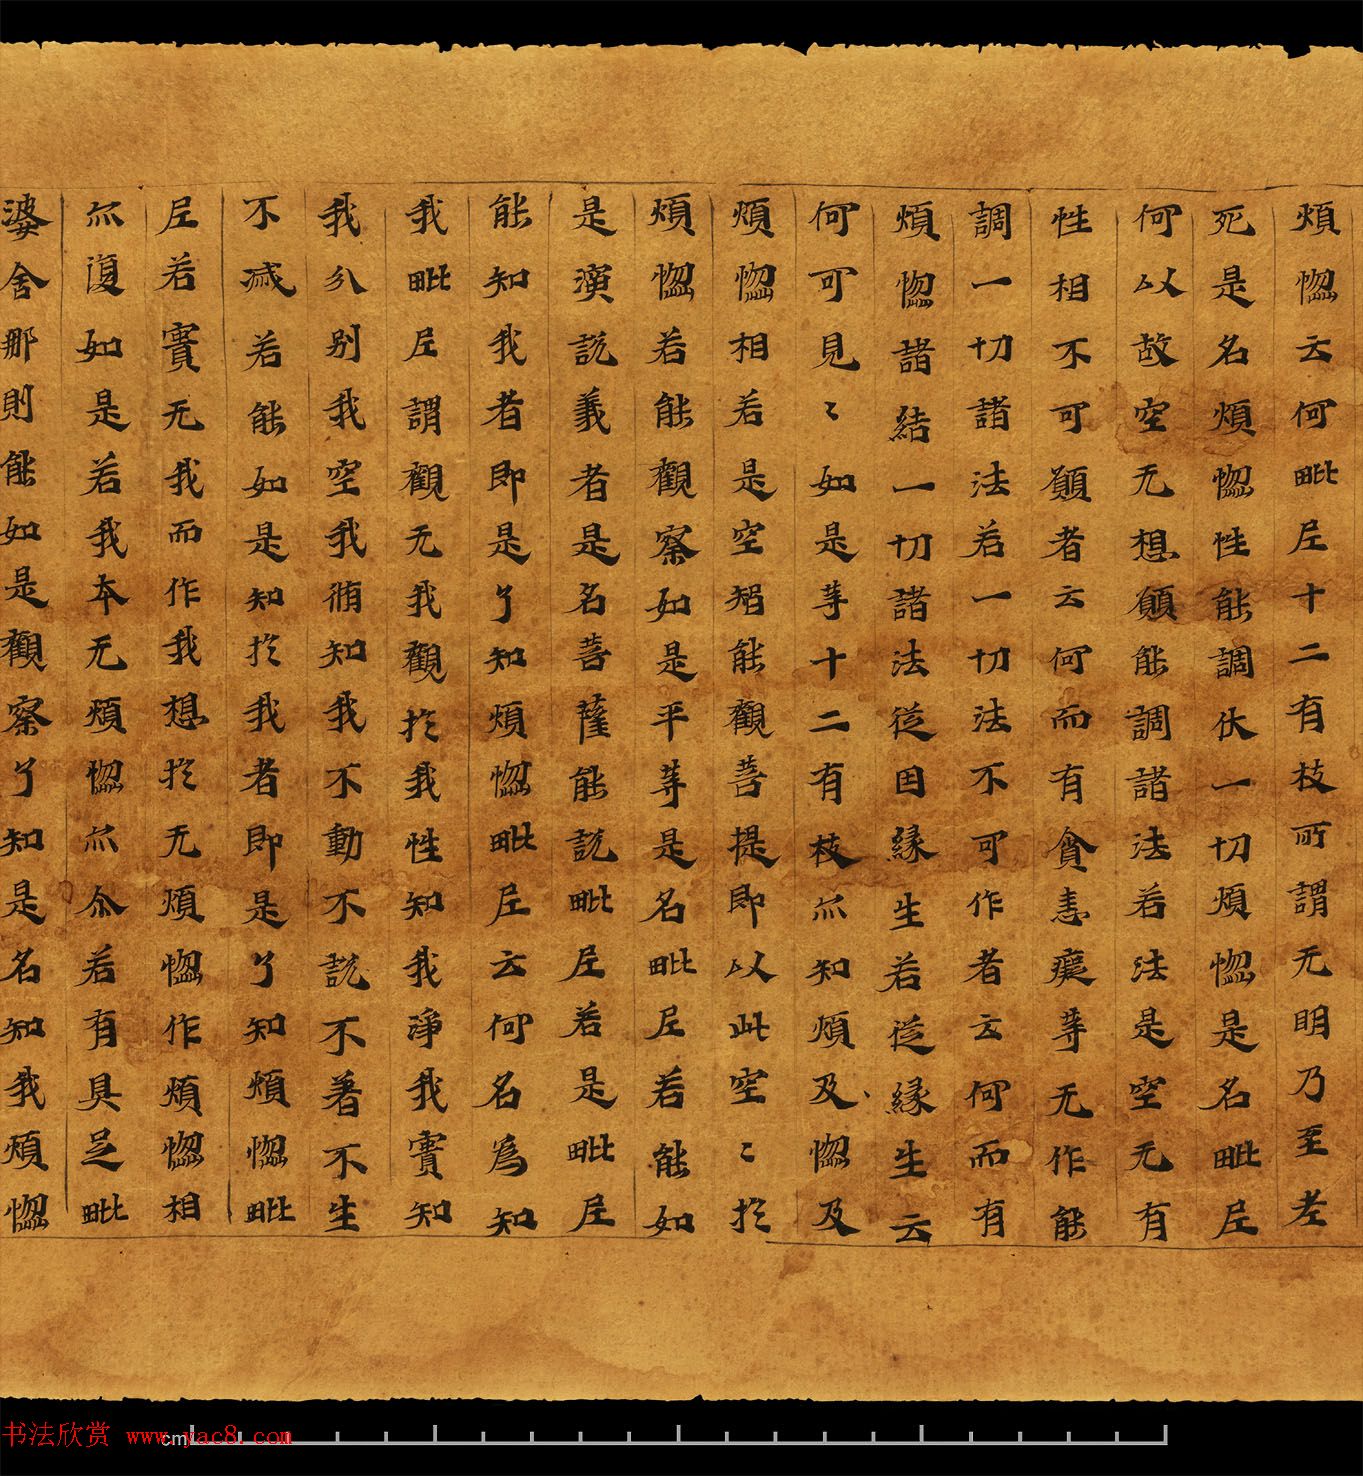 煩惱云何毗尼十二有枝所謂无明乃至老
死是名煩惱性能調伏一切煩惱是名毗尼
何以故空无想願能調諸法若法是空无有
性相不可願者云何而有貪恚癡等无作能
調一切諸法若一切法不可作者云何而有
煩惱諸結一切諸法從因緣生若從緣生云
何可見〻如是等十二有枝尒知煩及惱及
煩惱相若是空智能觀菩提即以此空〻於
煩惱若能觀察如是平等是名毗尼若能如
是演說義者是名菩薩能說毗尼若是毗尼
能知我者即是了知煩惱毗尼云何名為知
我毗尼謂觀无我觀於我性知我淨我實知
我分別我空我脩知我不動不說不著不生
不滅若能如是知於我者即是了知煩惱毗
尼若實无我而作我想於无煩惱作煩惱相
尒復如是若我本无煩惱尒尒若有具足毗
婆舍那則能如是觀察了知是名知我煩惱
书法欣赏 www.yac8.com
cm